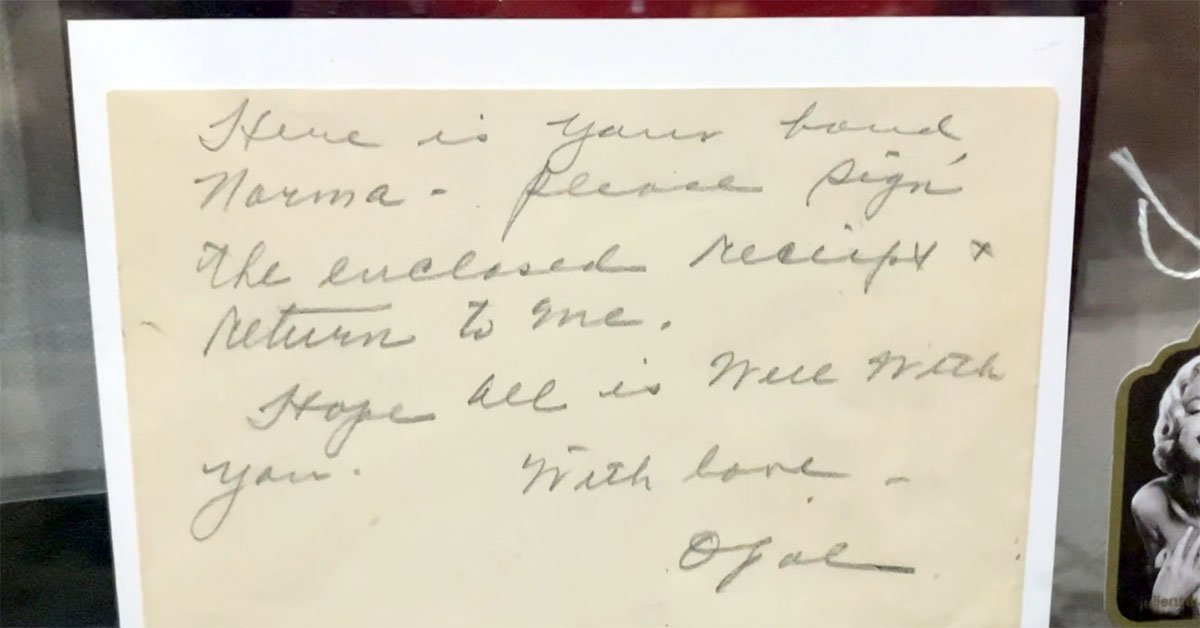 Here is your bond
Norma - please sign
the enclosed receipt +
return to me.
Hope all is well with
you. With love -
julien's